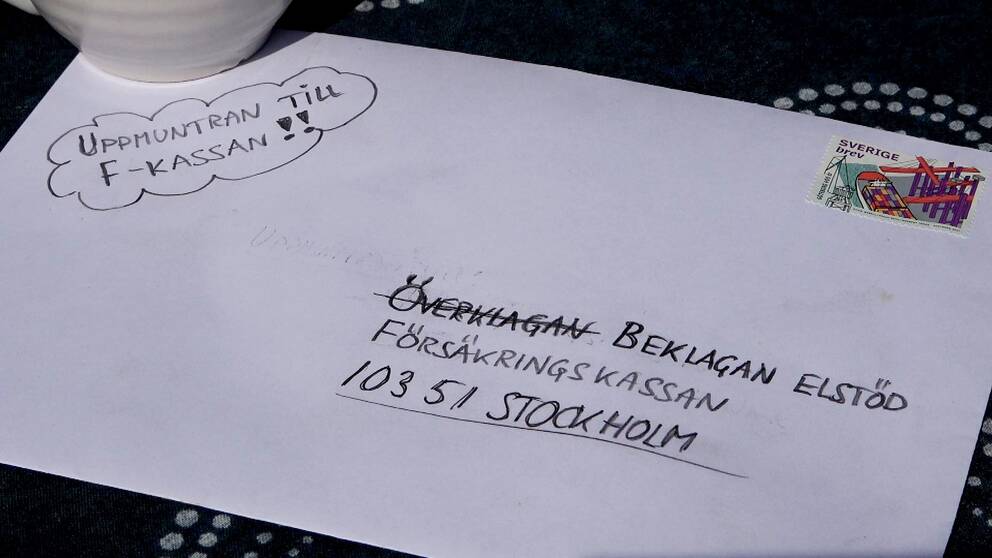 UPPMUNTRAN TILL
F-KASSAN!!
SVERIGE
brev
ÖVERKLAGAN BEKLAGAN ELSTÖD
FÖRSÄKRINGSKASSAN
103 51 STOCKHOLM